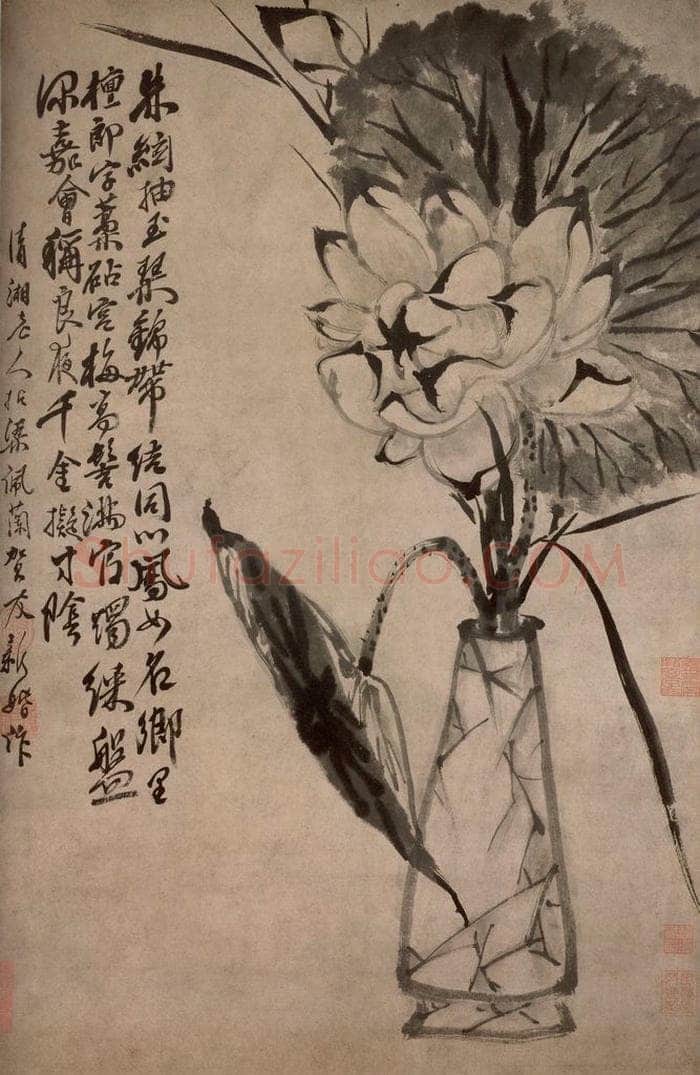 朱絃抽玉琴錦帶結同心鳳女名鄉里
檀郎字藁砧宮梅高髻滿官燭盤
深嘉會稱良夜千金擬寸陰
清湘老人拈梁佩蘭賀友新婚作
Shufaziliao.COM